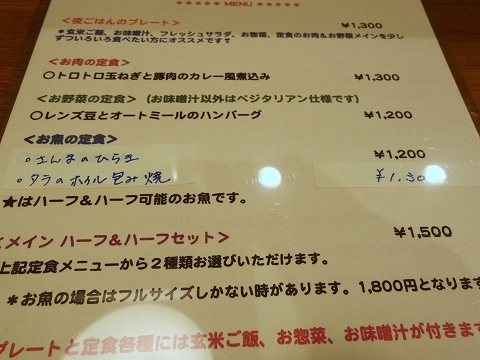 ***** MENU *****
<夜ごはんのプレート> ¥1,300
*玄米ご飯、お味噌汁、フレッシュサラダ、お惣菜、定食のお肉&お野菜メインを少し
ずついろいろ食べたい方にオススメです?
<お肉の定食>
○トロトロ玉ねぎと豚肉のカレー風煮込み ¥1,300
<お野菜の定食> (お味噌汁以外はベジタリアン仕様です)
○レンズ豆とオートミールのハンバーグ ¥1,200
<お魚の定食>
○さんまのひらき ¥1,200
○タラのホイル包み焼 ¥1.30
★はハーフ&ハーフ可能のお魚です。
<メイン ハーフ&ハーフセット> ¥1,500
上記定食メニューから2種類お選びいただけます。
*お魚の場合はフルサイズしかない時があります。1,800円となります
プレートと定食各種には玄米ご飯、お惣菜、お味噌汁が付きます